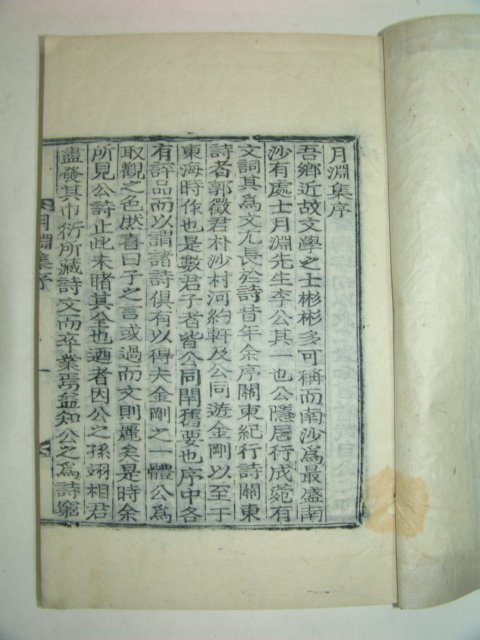 月淵集序
吾鄉近故文學之士彬彬多可稱而南沙爲最盛南
沙有處士月淵先生李公其一也公隱居行成菀有
文詞其爲文尤長於詩昔年余序關東紀行詩關東
詩者郭徵君朴沙村河約軒及公同遊金剛以至于
東海時作也是數君子者皆公同閈舊要也序中各
有評品而以謂諸詩俱有以得夫金剛之一體公爲
取觀之色然喜曰子之言或過而文則麗矣是時余
所見公詩止此未睹其全也迺者因公之孫翊相君
盡發其巾衍所藏詩文而卒業焉益知公之爲詩窮
月淵集序
一